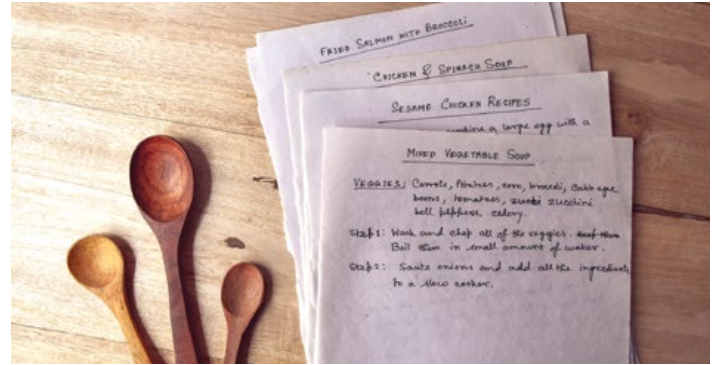 FRIED SALMON WITH BROCCOLI
CHICKEN & SPINACH SOUP
SESAME CHICKEN RECIPES
combine a large egg with a
MIXED VEGETABLE SOUP
VEGGIES: Carrots, Potatoes, corn, broccoli, Cabbage
beans, tomatoes, zucchini
bell peppers, celery.
Step 1: Wash and chop all of the veggies.
Boil them in small amount of water.
Step 2: Saute onions and add all the ingredients
to a slow cooker.